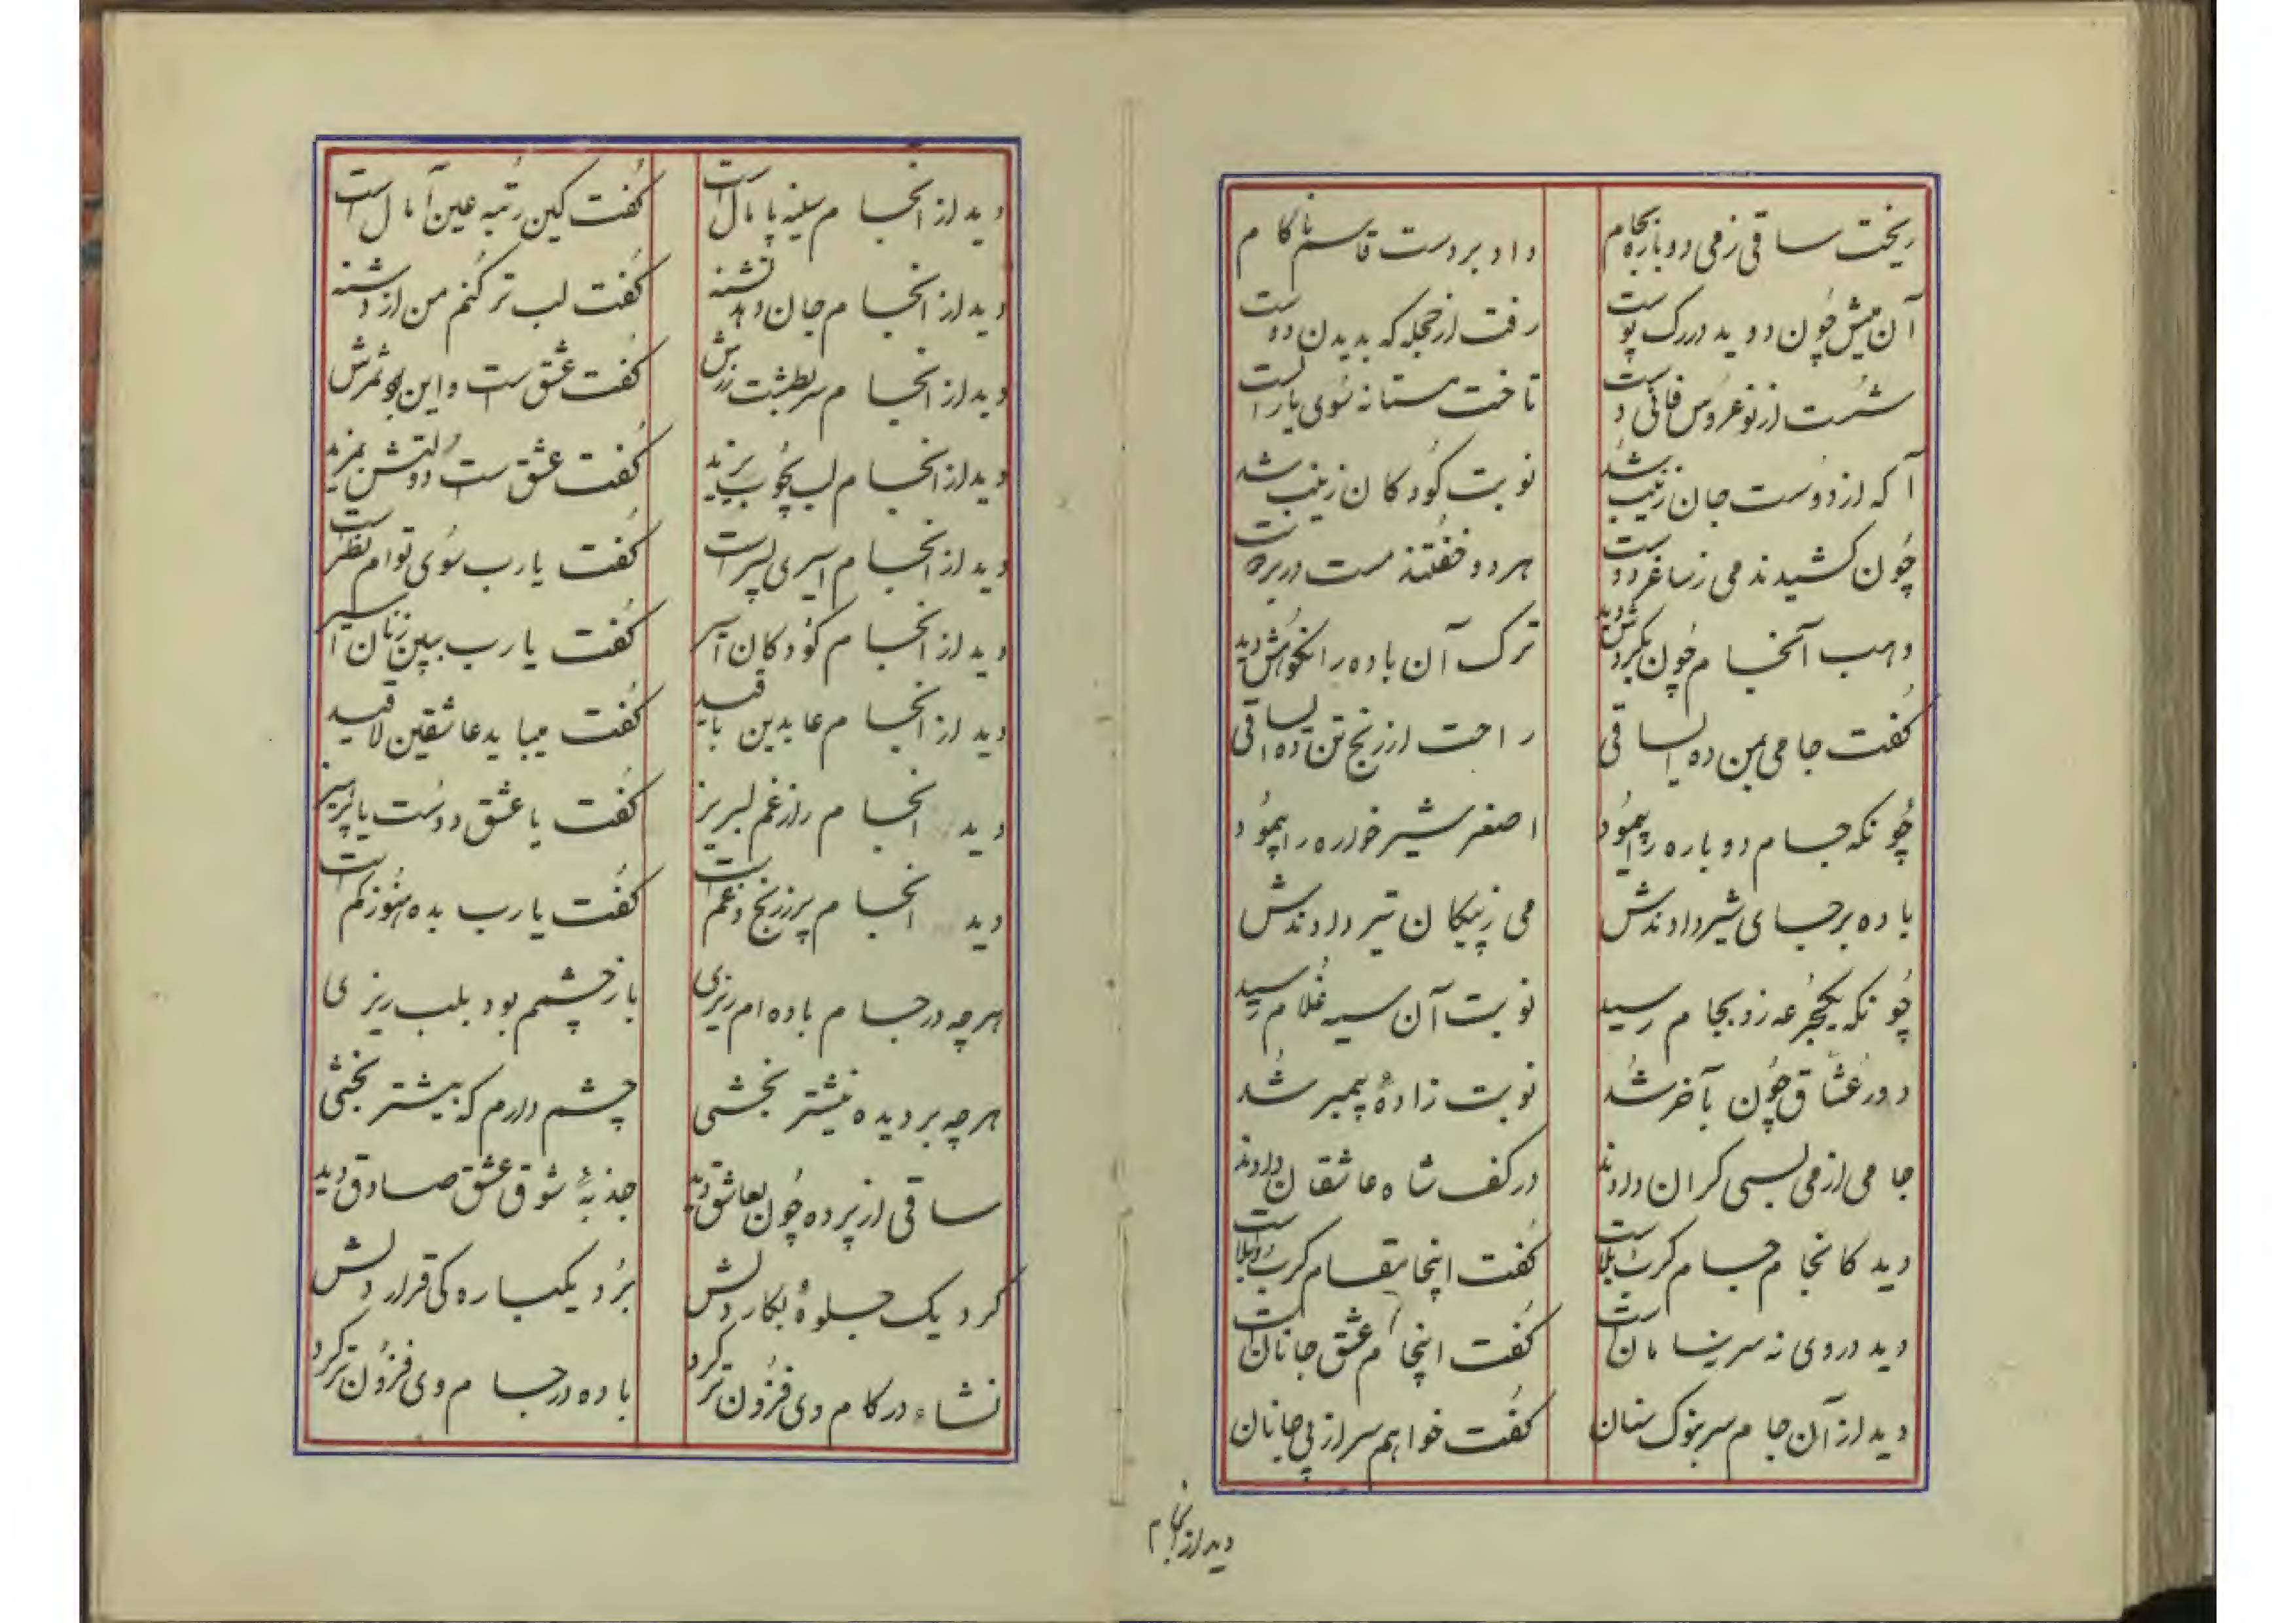 ریخت ساقی ز می دوباره بجام
داد بر دست قاسم ناکام
آن میش چون دوید در رگ پوست
رفت از حجله که بدیدن دوست
شست از نو عروس فانی دست
تاخت مستانه سوی یار الست
آکه از دوست جان زینب شد
نوبت کودکان زینب شد
چون کشیدند می ز ساغر دوست
هر دو خفتند مست در بر دوست
وهب آنجام چون بگردش دید
ترک آن باده را نکوهش دید
گفت جامی بمن ده ایساقی
راحت از رنج تن ده ایساقی
چونکه جام دوباره را پیمود
اصغر شیر خواره را پیمود
باده بر جای شیر دادندش
می ز پیکان تیر دادندش
چونکه یکجرعه زو بجام رسید
نوبت آن سیه غلام رسید
دور عشاق چون بآخر شد
نوبت زادهٔ پیمبر شد
جامی از می بسی گران دادند
در کف شاه عاشقان دادند
دید کانجام جام کرب بلاست
گفت اینجا مقام کرب و بلاست
دید در وی نه سر نه سامانست
گفت اینجام عشق جانانست
دید از آن جام سر بنوک سنان
گفت خواهم سر از پی جانان
دید از انجام
دید از انجام سینه پامال است
گفت کین رتبه عین آمال است
دید از انجام جان دهد تشنه
گفت لب تر کنم من از دشنه
دید از انجام سر بطشت زرش
گفت عشق ست و این بود ثمرش
دید از انجام لب بچوب یزید
گفت عشق ست دولتش بمزید
دید از انجام اسیری پسر است
گفت یارب سوی توام نظر است
دید از انجام کودکان اسیر
گفت یارب ببین زنان اسیر
دید از انجام عابدین با قید
گفت میباید عاشقین لا قید
دید انجام را ز غم لبریز
گفت با عشق دوست یا پرهیز
دید انجام پر ز رنج و غم است
گفت یارب بده هنوز کم است
هرچه در جام باده ام ریزی
باز چشمم بود بلب ریزی
هرچه بر دیده نیشتر بخشی
چشم دارم که بیشتر بخشی
ساقی از پرده چون بعاشق دید
جذبهٔ شوق عشق صادق دید
کرد یک جلوهٔ بکار دلش
برد یکباره کی قرار دلش
نشاء در کام وی فزون تر کرد
باده در جام وی فزون تر کرد